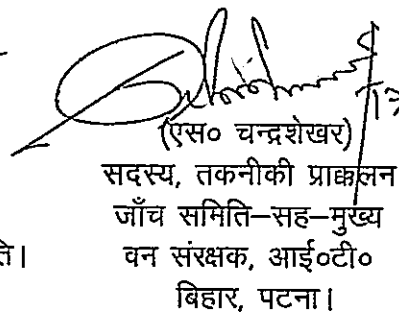 (एस० चन्द्रशेखर)
सदस्य, तकनीकी प्राक्कलन
जाँच समिति–सह–मुख्य
ति। वन संरक्षक, आई०टी०
बिहार, पटना।